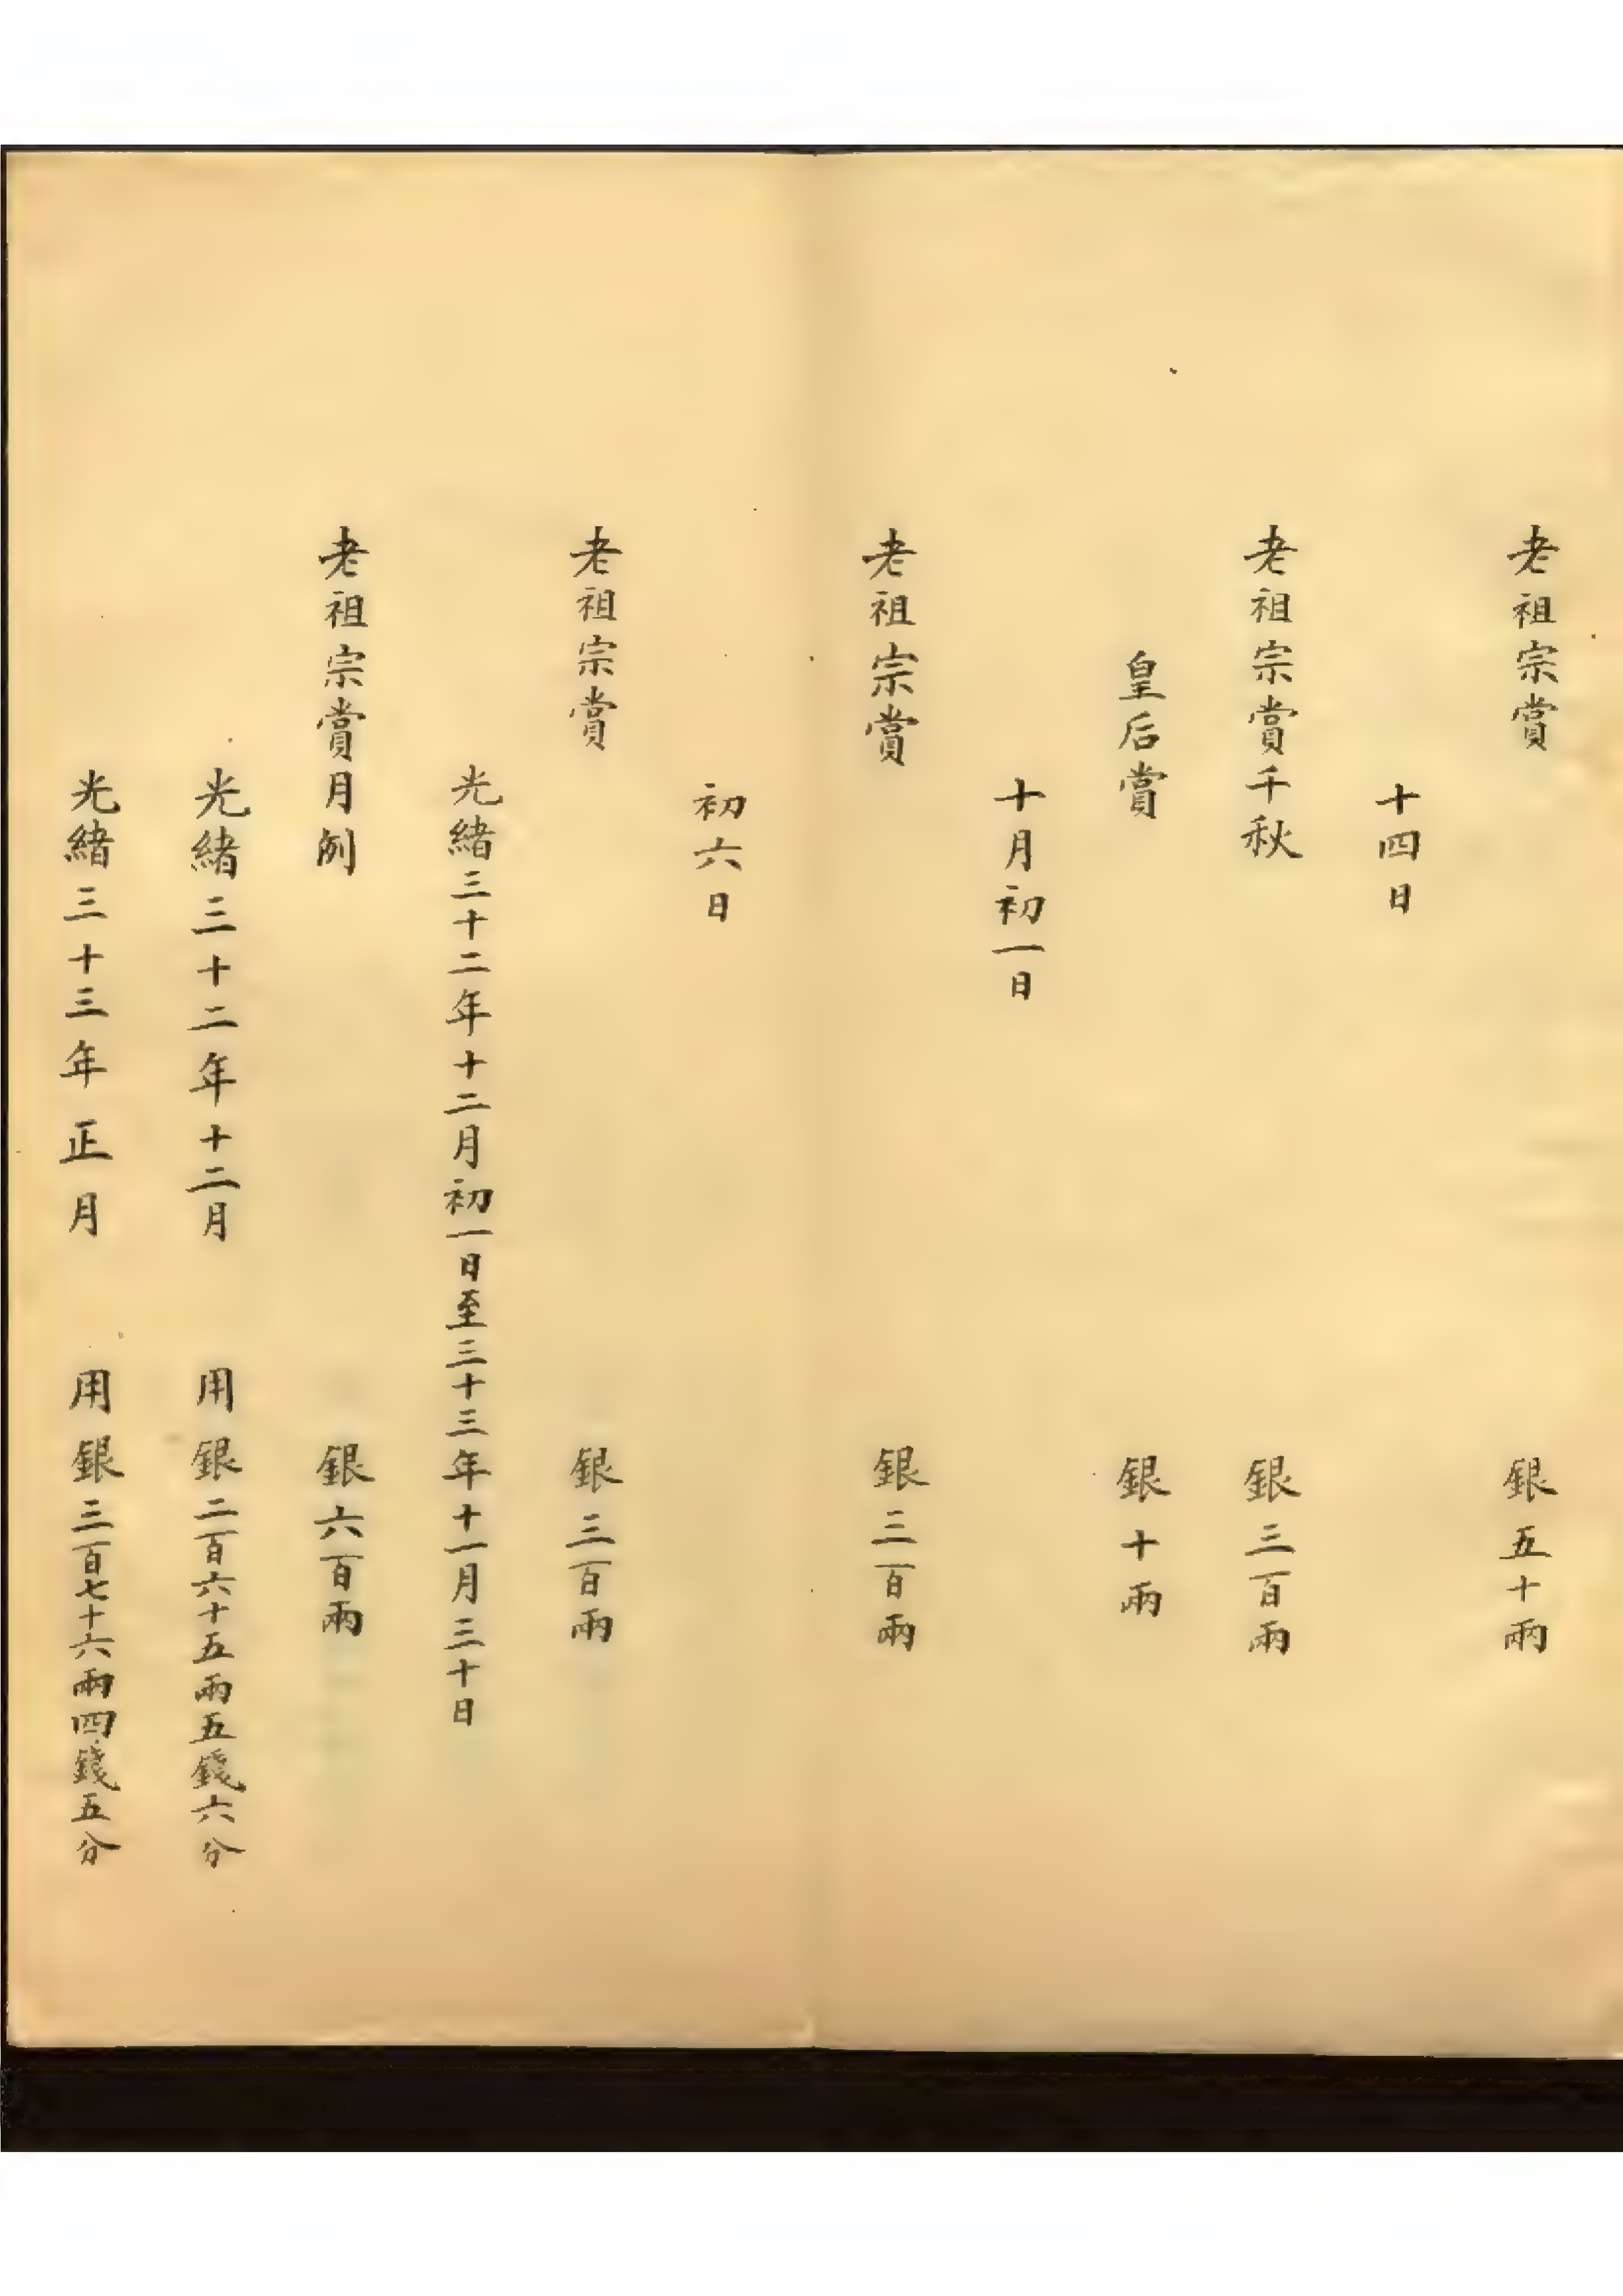 老祖宗賞 銀五十兩
十四日
老祖宗賞千秋 銀三百兩
皇后賞 銀十兩
十月初一日
老祖宗賞 銀三百兩
初六日
老祖宗賞 銀三百兩
光緒三十二年十二月初一日至三十三年十一月三十日
老祖宗賞月例 銀六百兩
光緒三十二年十二月 用銀二百六十五兩五錢六分
光緒三十三年正月 用銀三百七十六兩四錢五分